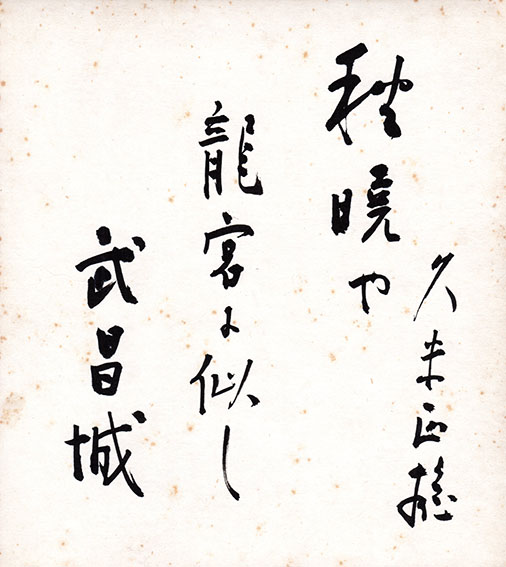 秋暁や
龍宮に似し
武昌城
久米正雄